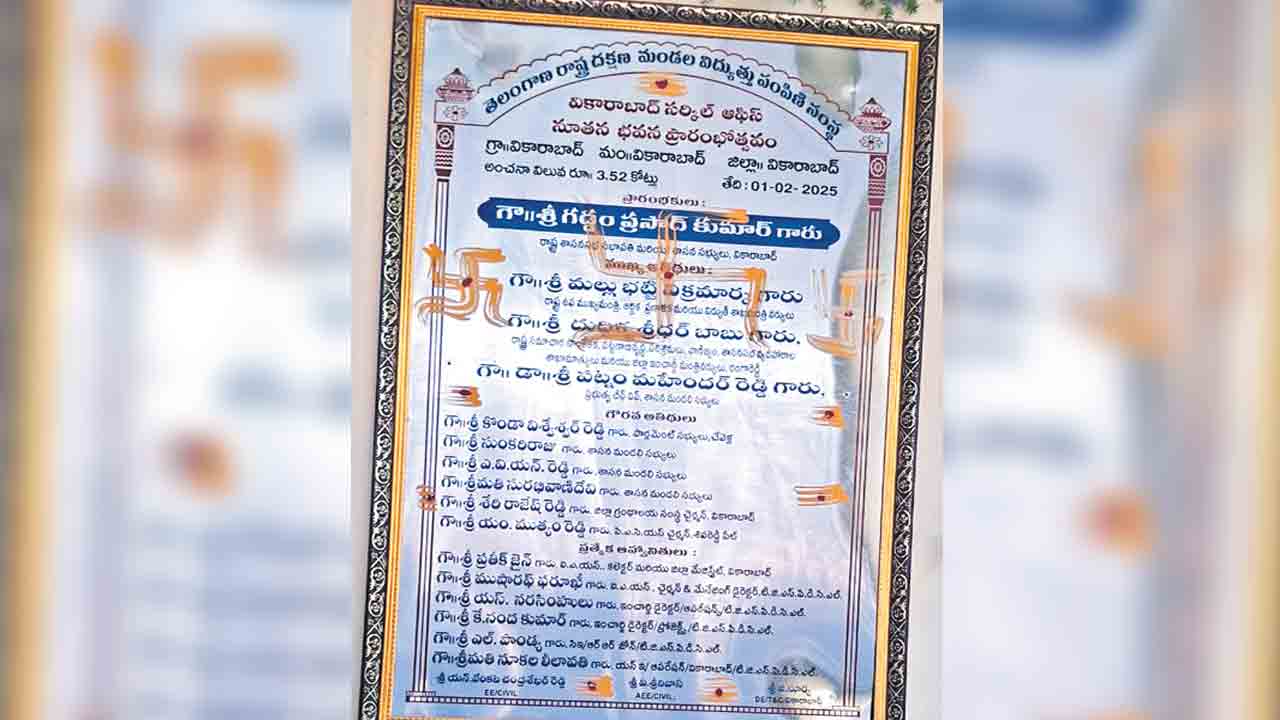 తెలంగాణ రాష్ట్ర దక్షిణ మండల విద్యుత్తు పంపిణి సంస్థ
వికారాబాద్ సర్కిల్ ఆఫీస్
నూతన భవన ప్రారంభోత్సవం
గ్రా॥వికారాబాద్ మం॥వికారాబాద్ జిల్లా॥ వికారాబాద్
అంచనా విలువ రూ॥ 3.52 కోట్లు తేది : 01-02- 2025
ప్రారంభకులు :
గౌ॥శ్రీ గడ్డం ప్రసాద్ కుమార్ గారు
రాష్ట్ర శాసనసభ సభాపతి మరియు శాసన సభ్యులు, వికారాబాద్
ముఖ్య అతిధులు :
గౌ॥శ్రీ మల్లు భట్టి విక్రమార్క గారు
రాష్ట్ర ఉప ముఖ్యమంత్రి, ఆర్థిక ప్రణాళిక మరియు విద్యుత్ శాఖమంత్రి వర్యులు
గౌ॥శ్రీ దుద్దిళ్ల శ్రీధర్ బాబు గారు.
రాష్ట్ర సమాచార సాంకేతిక, పరిశ్రమలు, వాణిజ్యం, శాసనసభ వ్యవహారాల
శాఖామాత్యులు మరియు జిల్లా ఇంచార్జి మంత్రివర్యులు, రంగారెడ్డి
గౌ॥ డా॥శ్రీ పట్నం మహేందర్ రెడ్డి గారు.
ప్రభుత్వ చీఫ్ విప్, శాసన మండలి సభ్యులు
గౌరవ అతిథులు
గౌ॥శ్రీ కొండా విశ్వేశ్వర్ రెడ్డి గారు, పార్లమెంట్ సభ్యులు, చేవెళ్ల
గౌ॥శ్రీ సుంకరిరాజు గారు, శాసన మండలి సభ్యులు
గౌ॥శ్రీ ఎ.వి.యన్. రెడ్డి గారు, శాసన మండలి సభ్యులు
గౌ॥శ్రీమతి సురభివాణిదేవి గారు, శాసన మండలి సభ్యులు
గౌ॥శ్రీ శేరి రాజేష్ రెడ్డి గారు, జిల్లా గ్రంథాలయ సంస్థ చైర్మన్, వికారాబాద్
గౌ॥శ్రీ యం. ముత్యం రెడ్డి గారు, పి.ఎ.సి.యస్ చైర్మన్, శివరెడ్డి పేట్
ప్రత్యేక ఆహ్వానితులు :
గౌ॥శ్రీ ప్రతీక్ జైన్ గారు, ఐ.ఎ.యస్., కలెక్టర్ మరియు జిల్లా మేజిస్ట్రేట్, వికారాబాద్
గౌ॥శ్రీ ముషారఫ్ ఫరూఖీ గారు, ఐ.ఎ.యస్., చైర్మన్ & మేనేజింగ్ డైరెక్టర్, టి.జి.ఎస్.పి.డి.సి.ఎల్.
గౌ॥శ్రీ యస్. నరసింహులు గారు, ఇంచార్జి డైరెక్టర్/ఆపరేషన్స్/టి.జి.ఎస్.పి.డి.సి.ఎల్.
గౌ॥శ్రీ కే.నంద కుమార్ గారు, ఇంచార్జి డైరెక్టర్/ప్రోజెక్ట్స్/టి.జి.ఎస్.పి.డి.సి.ఎల్.
గౌ॥శ్రీ ఎల్. పాండ్య గారు, సిఇ/ఆర్ఆర్ జోన్/టి.జి.ఎస్.పి.డి.సి.ఎల్.
గౌ॥శ్రీమతి నూకల లీలావతి గారు, యస్ఇ/ఆపరేషన్/వికారాబాద్/టి.జి.ఎస్.పి.డి.సి.ఎల్.
శ్రీ యన్.వెంకట చంద్రశేఖర్ రెడ్డి శ్రీ వి.శ్రీనివాస
EE/CIVIL. AEE/CIVIL. DE/T&C/వికారాబాద్